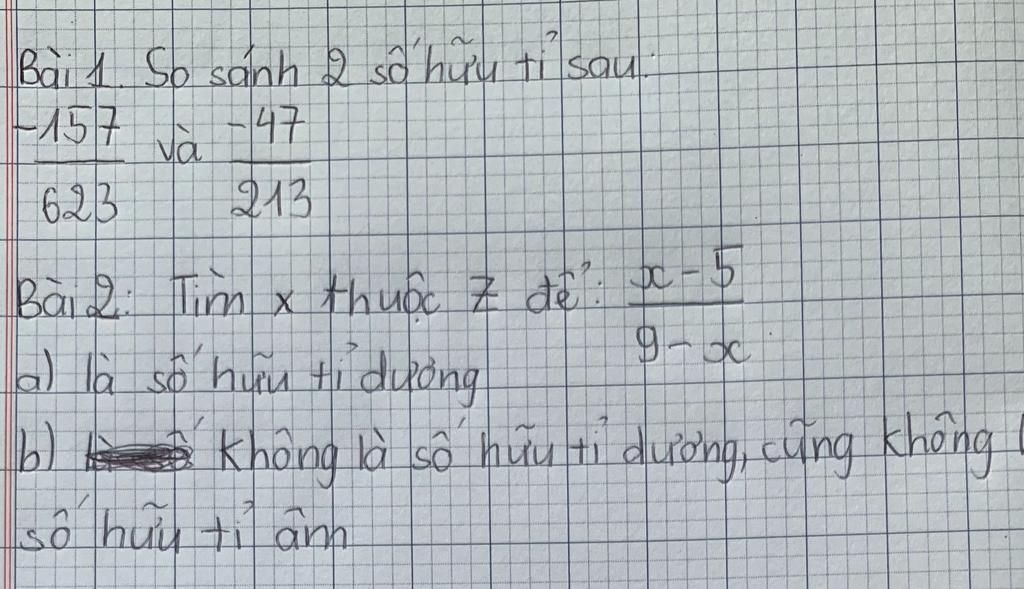 Bài 1. So sánh 2 số hữu tỉ sau:
-157/623 và -47/213
Bài 2: Tìm x thuộc Z để: x-5/9-x
a) là số hữu tỉ dương
b) không là số hữu tỉ dương, cũng không
số hữu tỉ âm